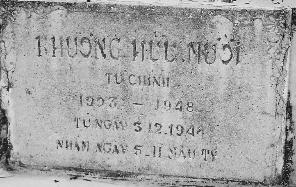 TRƯƠNG HỮU MƯỜI
TỰ CHÍNH
1903 - 1948
TỪ NGÀY 3.12.1948
NHẰM NGÀY 3.11 MẬU TÝ